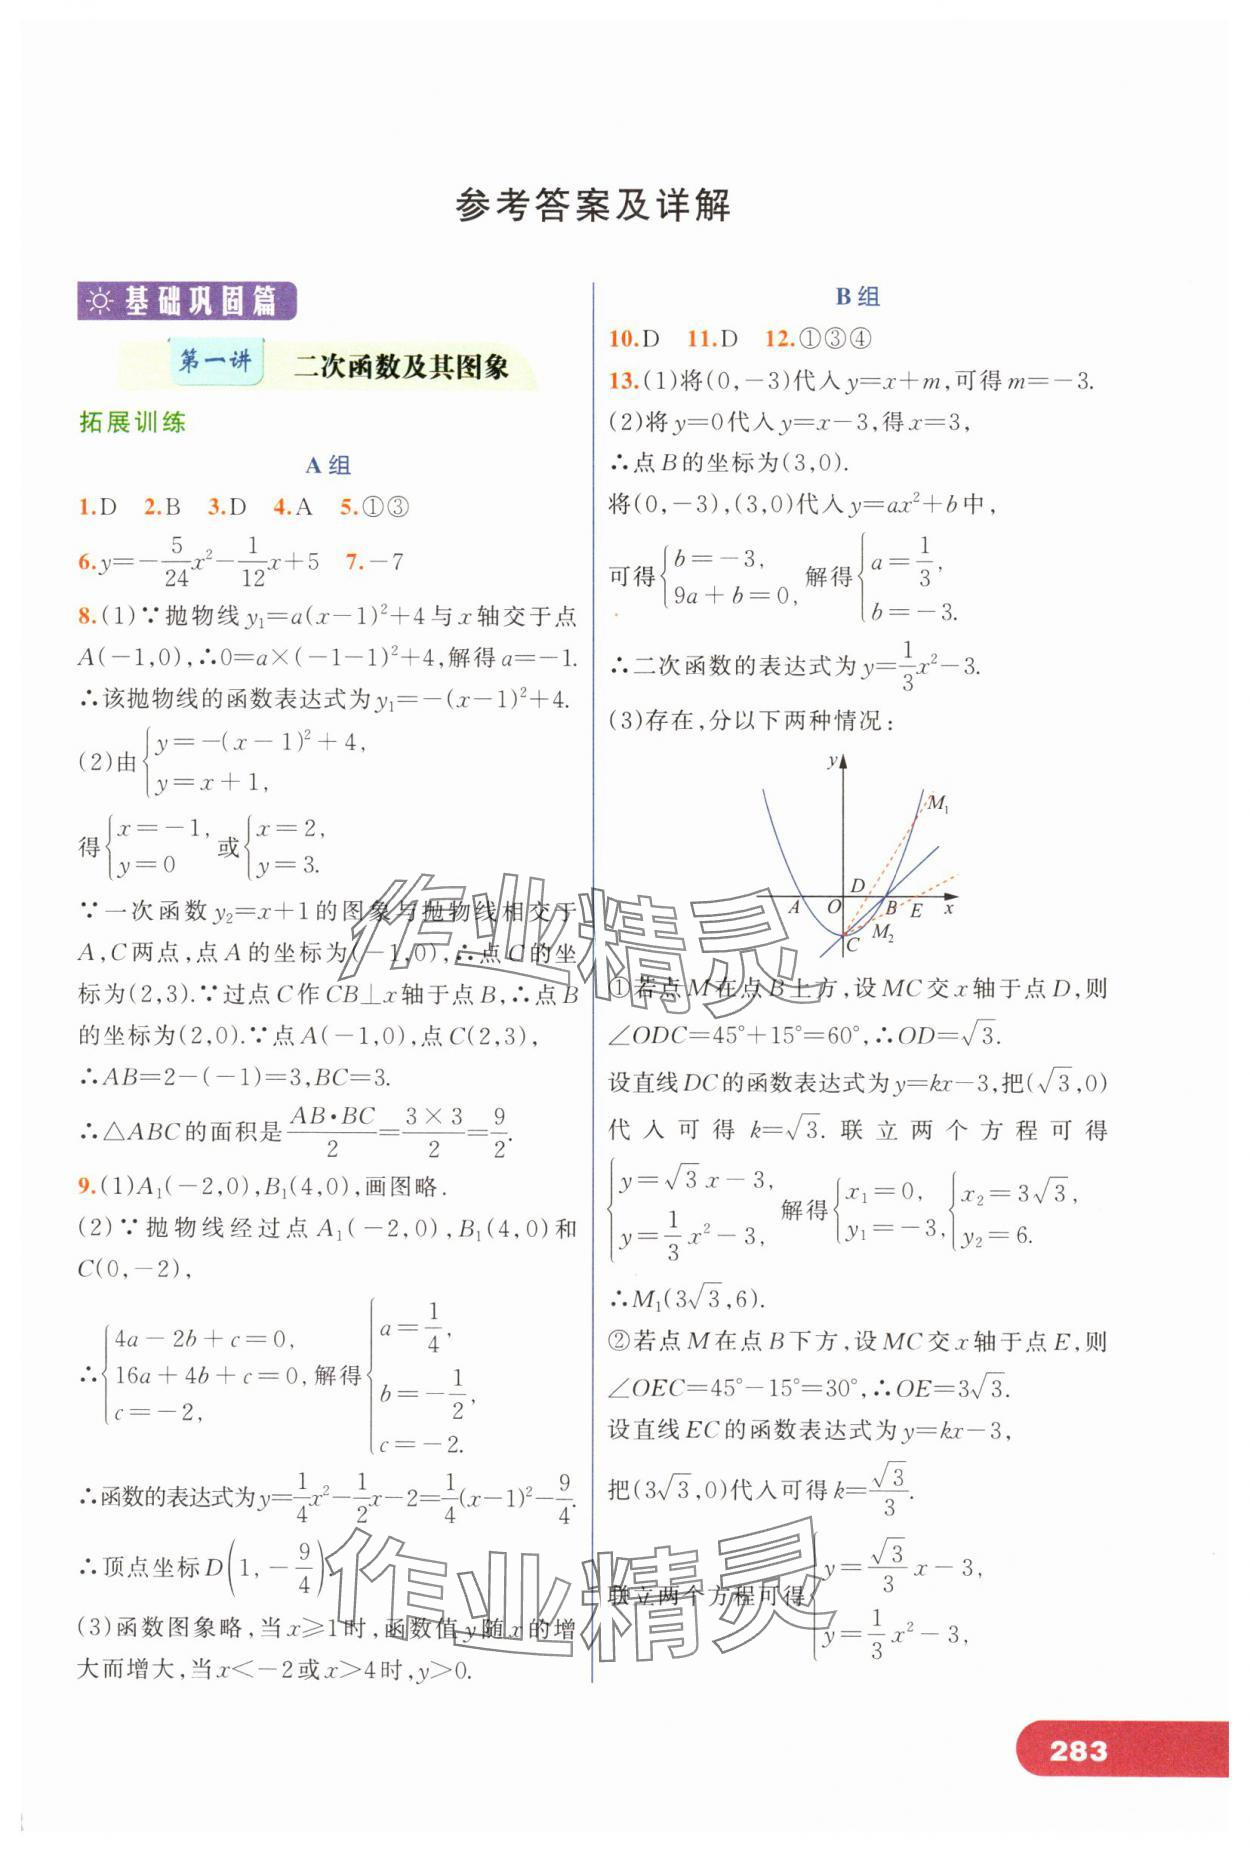 参考答案及详解
基础巩固篇
第一讲 二次函数及其图象
拓展训练
A组
1.D 2.B 3.D 4.A 5.①③
6.y=-\frac{5}{24}x²-\frac{1}{12}x+5 7.-7
8.(1)∵抛物线y₁=a(x-1)²+4与x轴交于点
A(-1,0),∴0=a×(-1-1)²+4,解得a=-1.
∴该抛物线的函数表达式为y₁=-(x-1)²+4.
(2)由{y=-(x-1)²+4, y=x+1,
得{x=-1, y=0 或{x=2, y=3.
∵一次函数y₂=x+1的图象与抛物线相交于
A,C两点,点A的坐标为(-1,0),∴点C的坐
标为(2,3).∵过点C作CB⊥x轴于点B,∴点B
的坐标为(2,0).∵点A(-1,0),点C(2,3),
∴AB=2-(-1)=3,BC=3.
∴△ABC的面积是\frac{AB·BC}{2}=\frac{3×3}{2}=\frac{9}{2}.
9.(1)A₁(-2,0),B₁(4,0),画图略.
(2)∵抛物线经过点A₁(-2,0),B₁(4,0)和
C(0,-2),
∴{4a-2b+c=0, 16a+4b+c=0, c=-2, 解得{a=\frac{1}{4}, b=-\frac{1}{2}, c=-2.
∴函数的表达式为y=\frac{1}{4}x²-\frac{1}{2}x-2=\frac{1}{4}(x-1)²-\frac{9}{4}.
∴顶点坐标D(1,-\frac{9}{4})
(3)函数图象略,当x≥1时,函数值y随x的增
大而增大,当x<-2或x>4时,y>0.
B组
10.D 11.D 12.①③④
13.(1)将(0,-3)代入y=x+m,可得m=-3.
(2)将y=0代入y=x-3,得x=3,
∴点B的坐标为(3,0).
将(0,-3),(3,0)代入y=ax²+b中,
可得{b=-3, 9a+b=0, 解得{a=\frac{1}{3}, b=-3.
∴二次函数的表达式为y=\frac{1}{3}x²-3.
(3)存在,分以下两种情况:
y
M₁
D
A O B E x
C M₂
①若点M在点B上方,设MC交x轴于点D,则
∠ODC=45°+15°=60°,∴OD=√3.
设直线DC的函数表达式为y=kx-3,把(√3,0)
代入可得k=√3.联立两个方程可得
{y=√3x-3, y=\frac{1}{3}x²-3, 解得{x₁=0, y₁=-3, {x₂=3√3, y₂=6.
∴M₁(3√3,6).
②若点M在点B下方,设MC交x轴于点E,则
∠OEC=45°-15°=30°,∴OE=3√3.
设直线EC的函数表达式为y=kx-3,
把(3√3,0)代入可得k=\frac{√3}{3}.
联立两个方程可得{y=\frac{√3}{3}x-3, y=\frac{1}{3}x²-3,
作业精灵
作业精灵
283